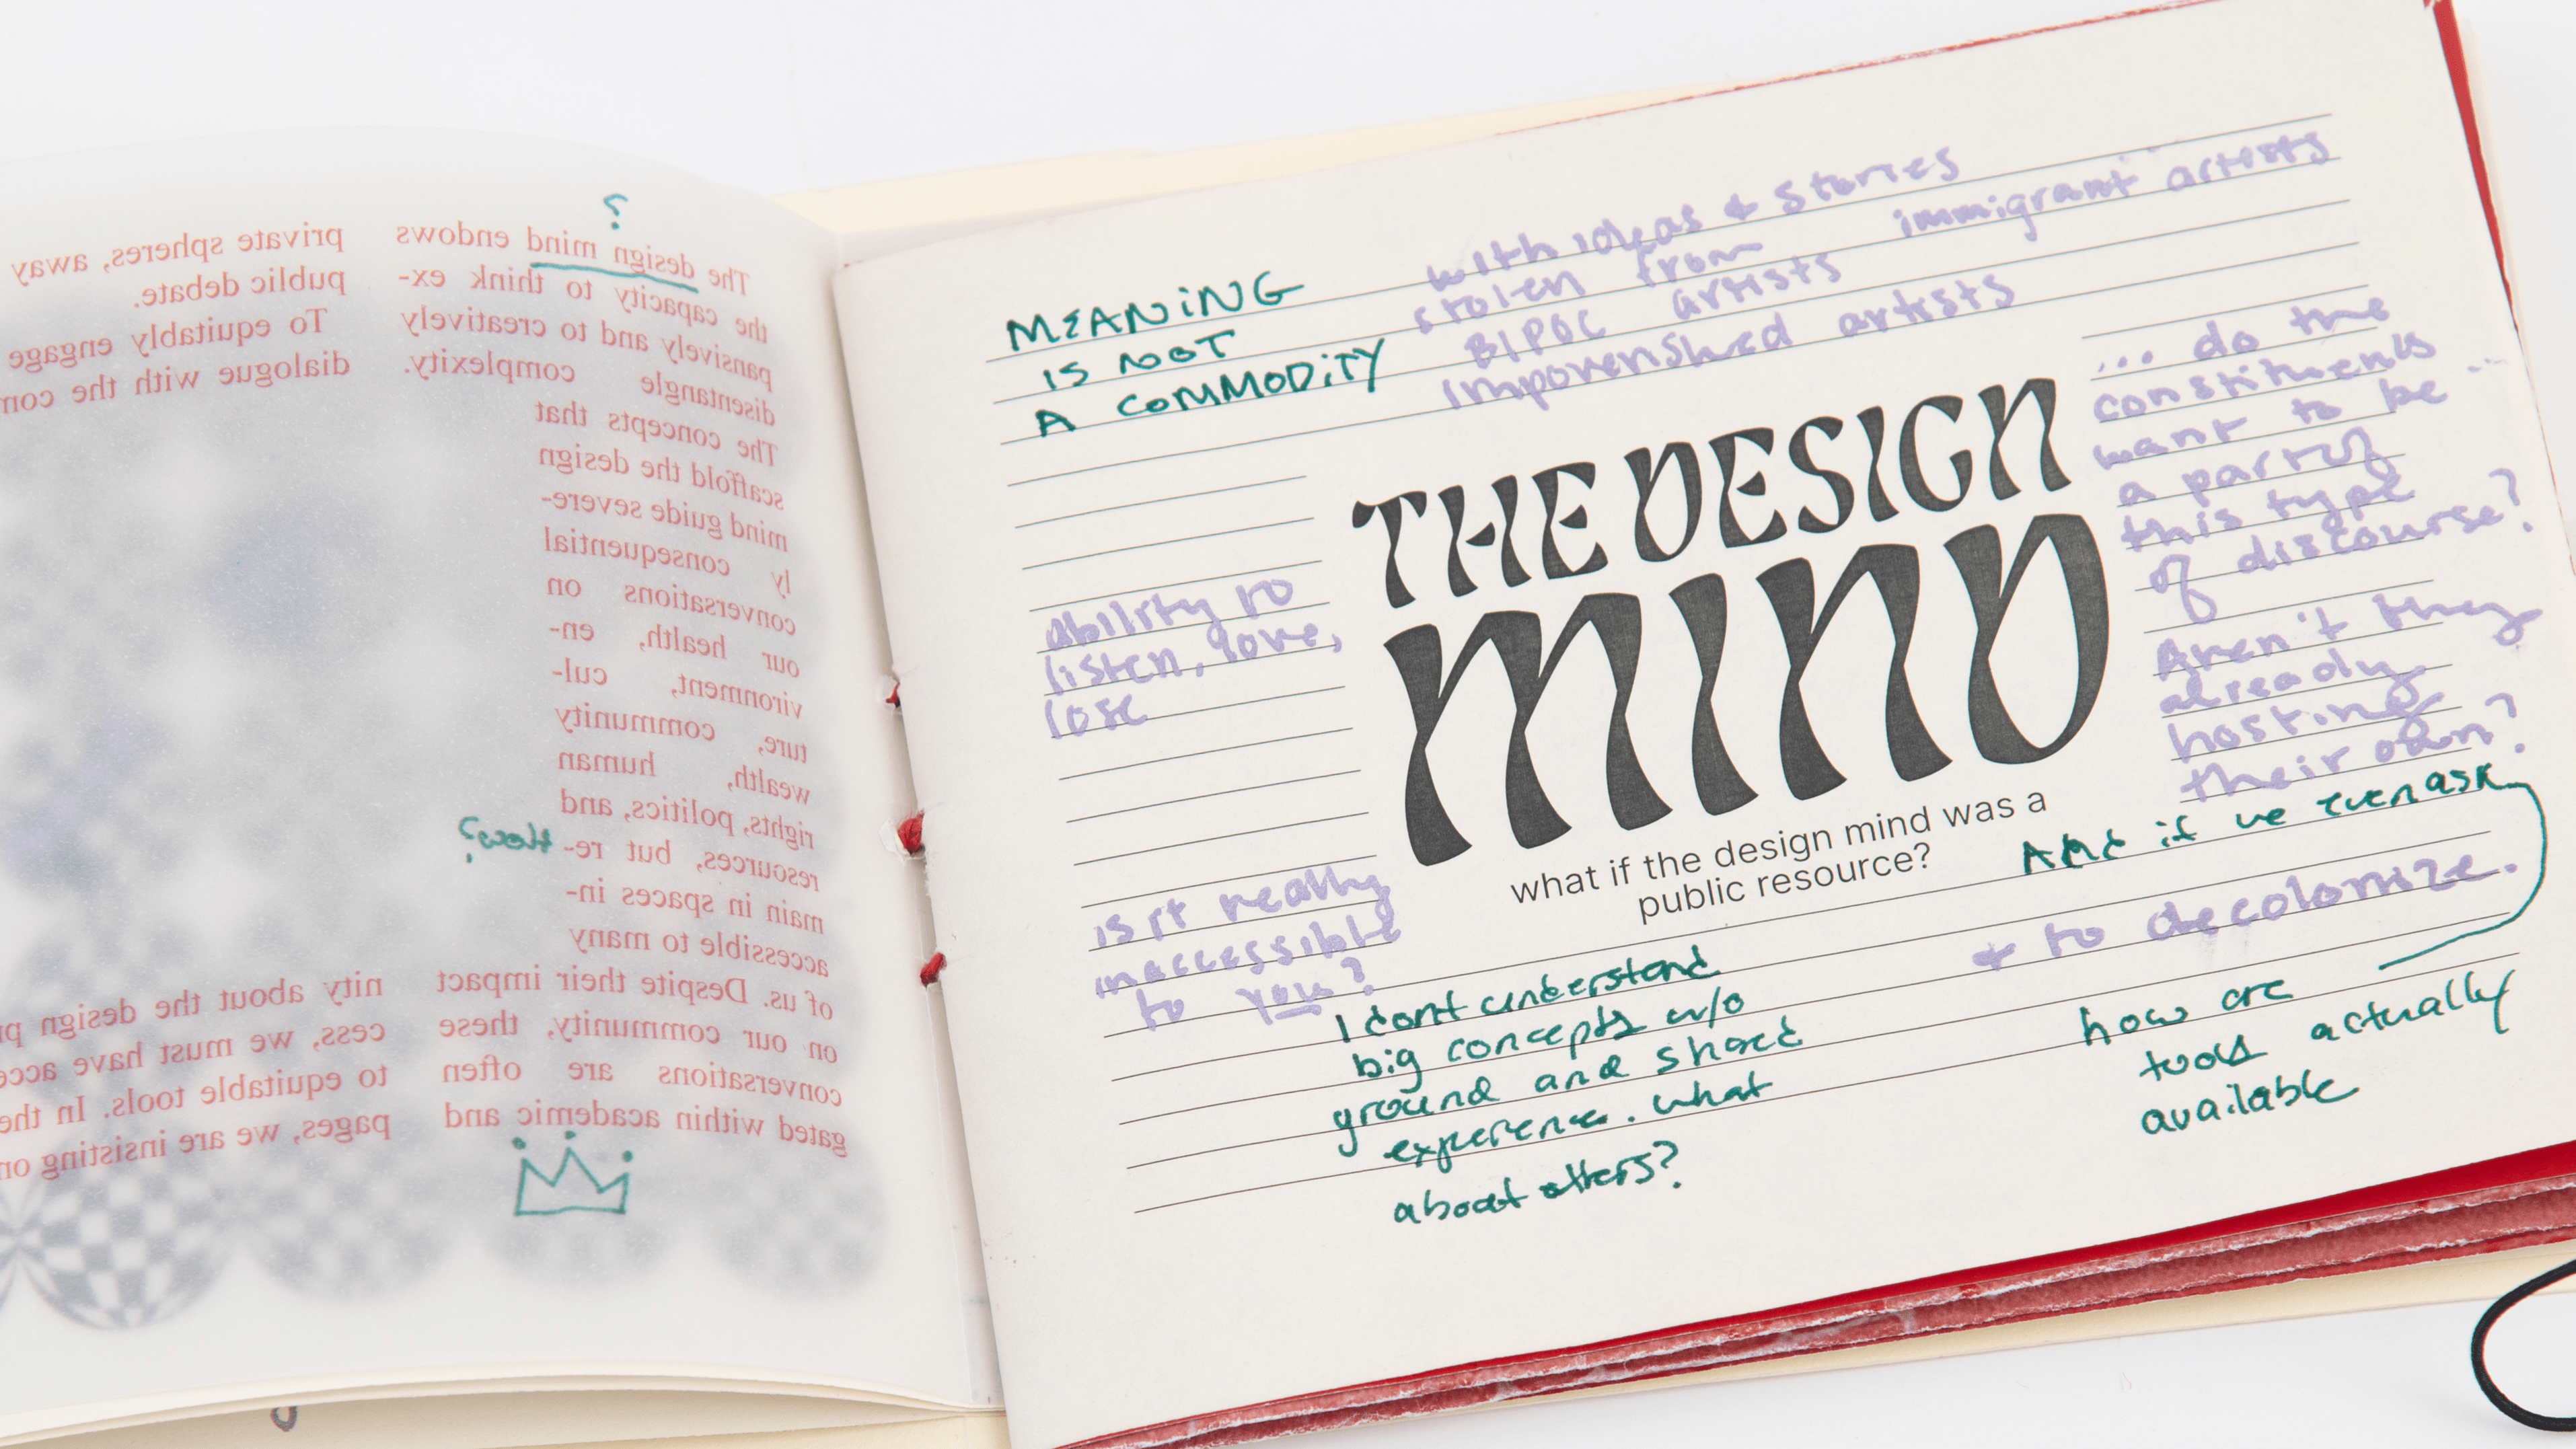 ?
The design mind endows
the capacity to think ex-
pansively and to creatively
disentangle complexity.
The concepts that
scaffold the design
mind guide severe-
ly consequential
conversations on
our health, en-
vironment, cul-
ture, community
wealth, human
rights, politics, and
resources, but re-
How?
main in spaces in-
accessible to many
of us. Despite their impact
on our community, these
conversations are often
gated within academic and
private spheres, away
public debate.
To equitably engage
dialogue with the com
nity about the design pr
cess, we must have acce
to equitable tools. In the
pages, we are insisting on
MEANING
IS NOT
A COMMODITY
with ideas & stories
stolen from
BIPOC artists
immigrant artists
impoverished artists
... do the
constituents
want to be ...
a part of
this type
of discourse?
Aren't they
already
hosting
their own?
THE DESIGN
MIND
what if the design mind was a
public resource?
ability to
listen, love,
lose
is it really
inaccessible
to you?
And if we even ask
& to decolonize.
I dont understand
big concepts w/o
ground and shared
experience. what
about others?
how are
tools actually
available